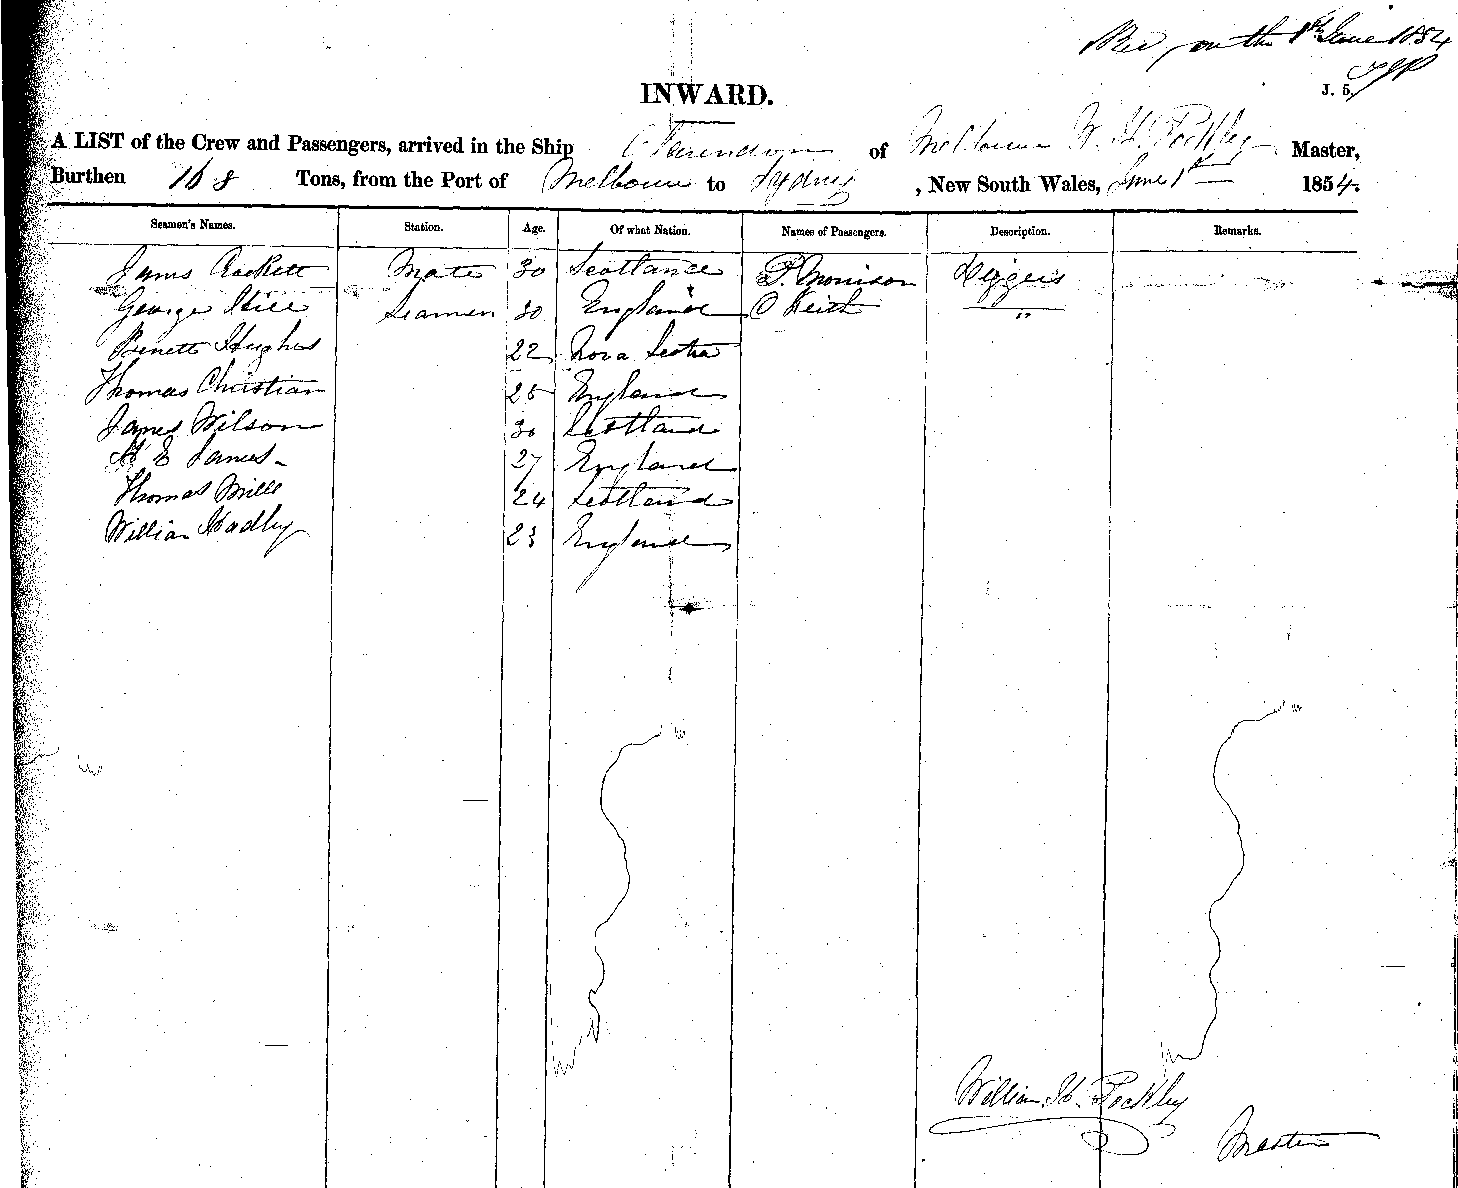 Rec on the 1st June 1854
J. 5.
INWARD.
A LIST of the Crew and Passengers, arrived in the Ship Clarendon of Melbourne W. H. Pockley Master,
Burthen 168 Tons, from the Port of Melbourne to Sydney , New South Wales, June 1st 1854.
Seamen's Names. Station. Age. Of what Nation. Names of Passengers. Description. Remarks.
James Mate 30 Scotland P. Morrison Diggers
George Hill Seamen 30 England C Keith "
Hughes 22 Nova Scotia
Thomas Christian 25 England
James Wilson 30 Scotland
H E James 27 England
Thomas Mills 24 Scotland
William Hadley 23 England
William H. Pockley
Master